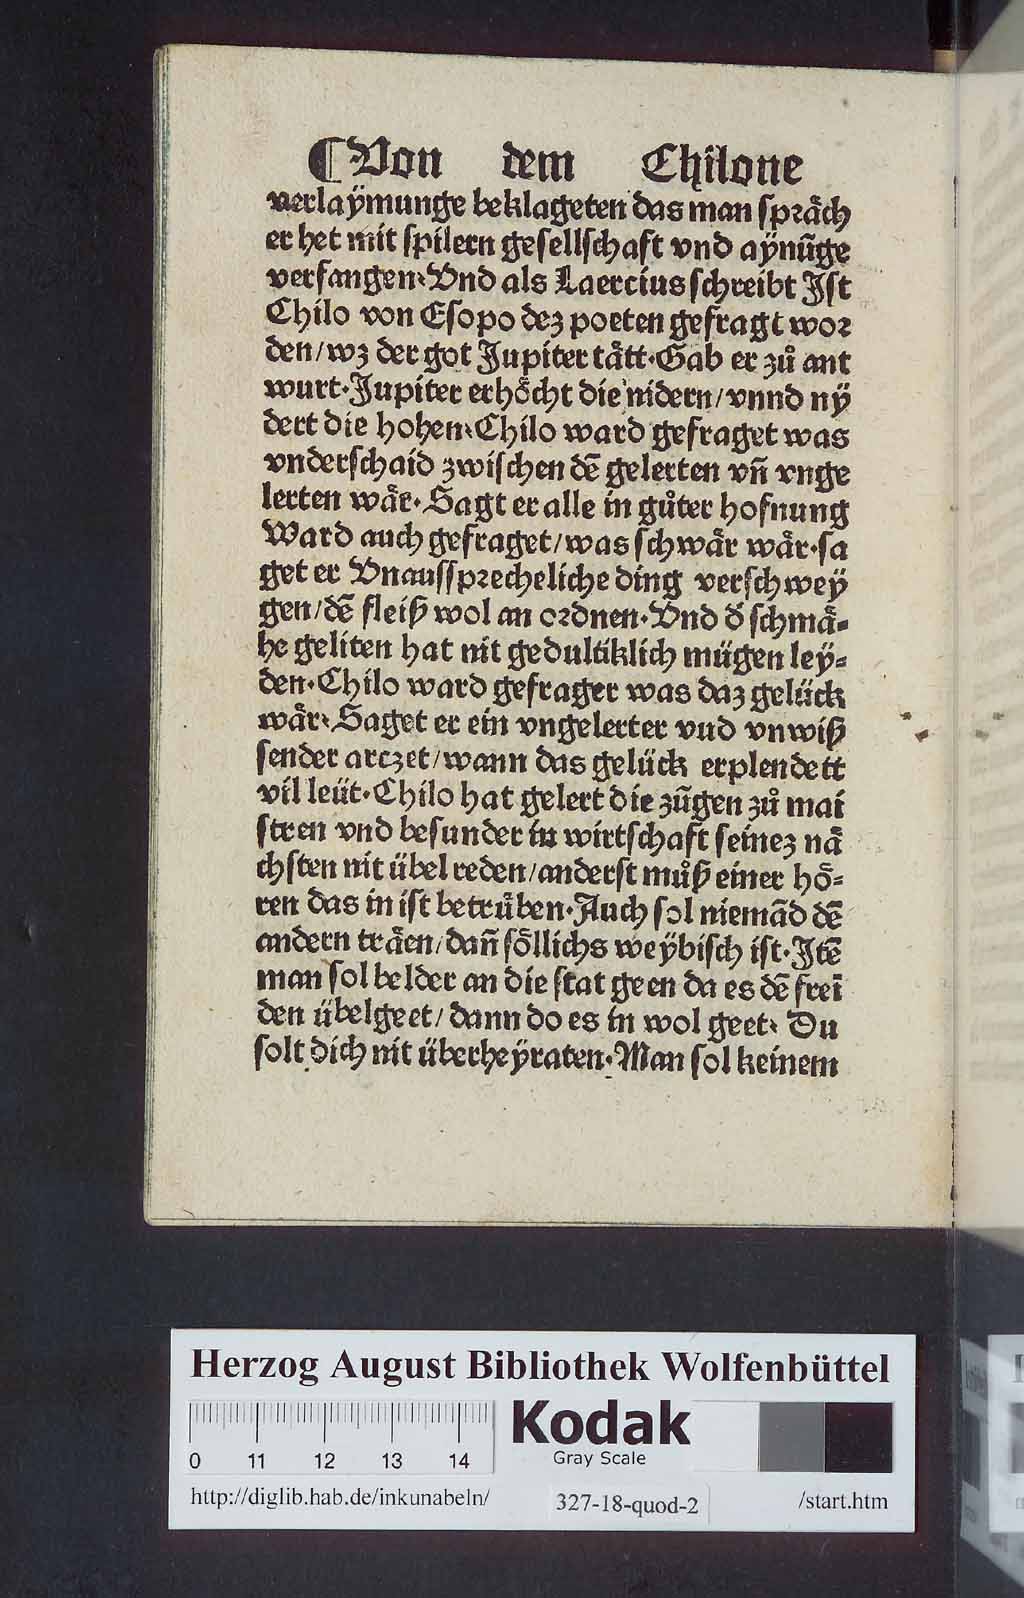 ⸿ Von dem Chilone
verlaÿmunge beklageten das man spräch
er het mit spilern gesellschaft vnd aÿnūge
verfangen. Vnd als Laercius schreibt Ist
Chilo von Esopo dez poeten gefragt wor
den/wz der got Jupiter tätt. Gab er zů ant
wurt. Jupiter erhöcht die nidern/vnnd nÿ
dert die hohen. Chilo ward gefraget was
vnderschaid zwischen dē gelerten vn̄ vnge
lerten wär. Sagt er alle in gůter hofnung
Ward auch gefraget/was schwär wär. sa
get er Vnaussprecheliche ding verschweÿ
gen/dē fleiß wol an ordnen. Vnd d' schmä-
he geliten hat nit gedultiklich mügen leÿ-
den. Chilo ward gefrager was daz gelück
wär. Saget er ein vngelerter vud vnwiß
sender arczet/wann das gelück erplendett
vil leüt. Chilo hat gelert die zūgen zů mai
stren vnd besunder in wirtschaft seinez nä
chsten nit übel reden/anderst můß einer hö-
ren das in ist betrüben. Auch sol niemād dē
andern träen/dan̄ söllichs weÿbisch ist. Itē
man sol belder an die stat geen da es dē frei
den übelgeet/dann do es in wol geet. Du
solt dich nit überheÿraten. Man sol keinem
Herzog August Bibliothek Wolfenbüttel
0 11 12 13 14
Kodak
Gray Scale
http://diglib.hab.de/inkunabeln/ 327-18-quod-2 /start.htm